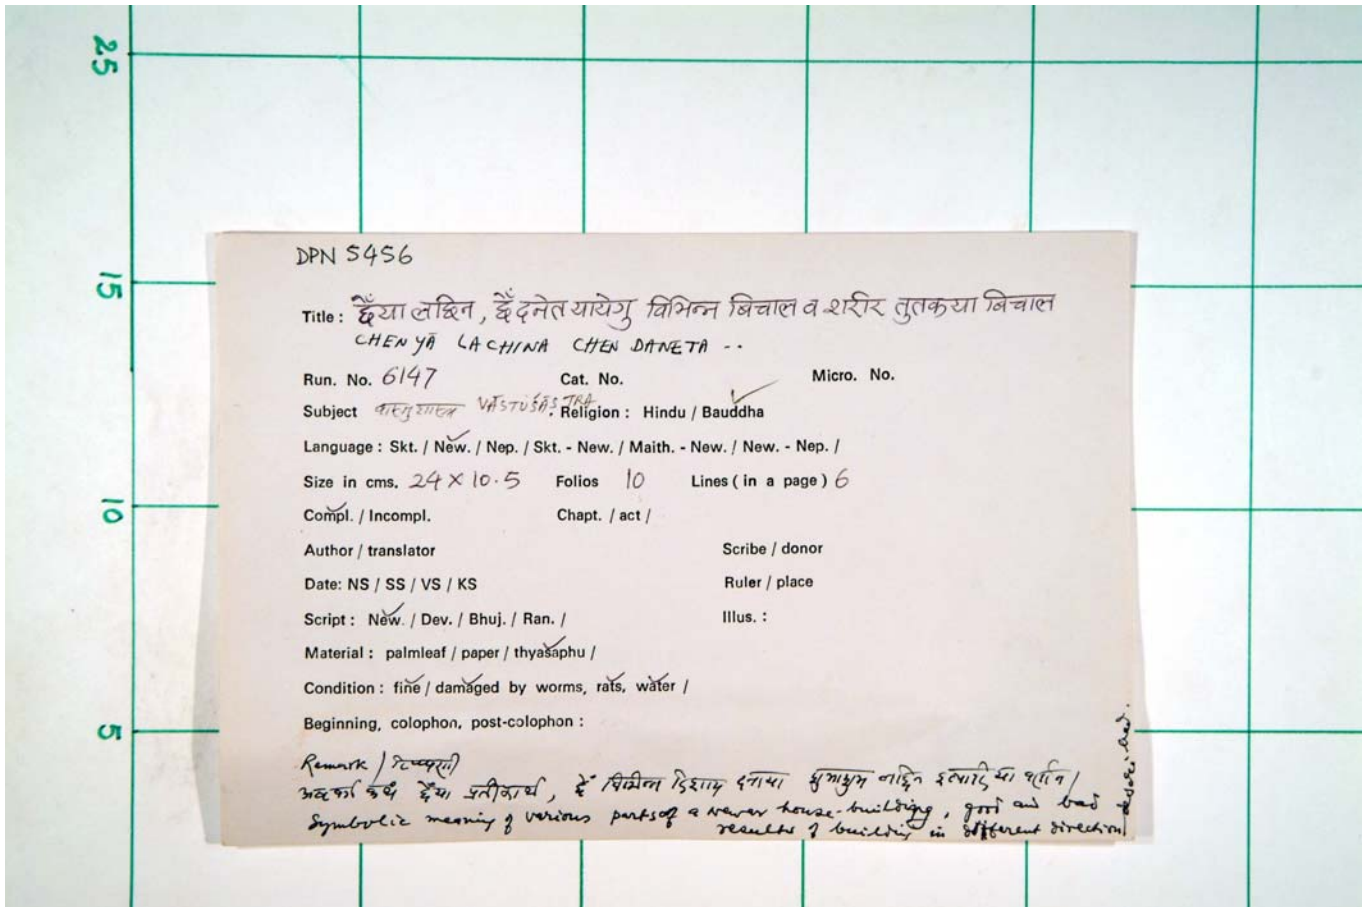 25
15
10
5
DPN 5456
Title : छेँया लछिन, छेँ दनेत यायेगु विभिन्न बिचाल व शरीर तुतकया बिचाल
CHEN YĀ LACHINA CHEN DANETA --
Run. No. 6147 Cat. No. Micro. No.
Subject वास्तुशास्त्र VĀSTUŚĀSTRA. Religion : Hindu / Bauddha
Language : Skt. / New. / Nep. / Skt. - New. / Maith. - New. / New. - Nep. /
Size in cms. 24 X 10.5 Folios 10 Lines ( in a page ) 6
Compl. / Incompl. Chapt. / act /
Author / translator Scribe / donor
Date: NS / SS / VS / KS Ruler / place
Script : New. / Dev. / Bhuj. / Ran. / Illus. :
Material : palmleaf / paper / thyasaphu /
Condition : fine / damaged by worms, rats, water /
Beginning, colophon, post-colophon :
Remark / टिप्पणी
छेँया प्रतीकार्थ, छेँ विभिन्न दिशाय दनाया शुभाशुभ इत्यादि या वर्णन /
Symbolic meaning of various parts of a newar house-building, good and bad
results of building in different direction described.